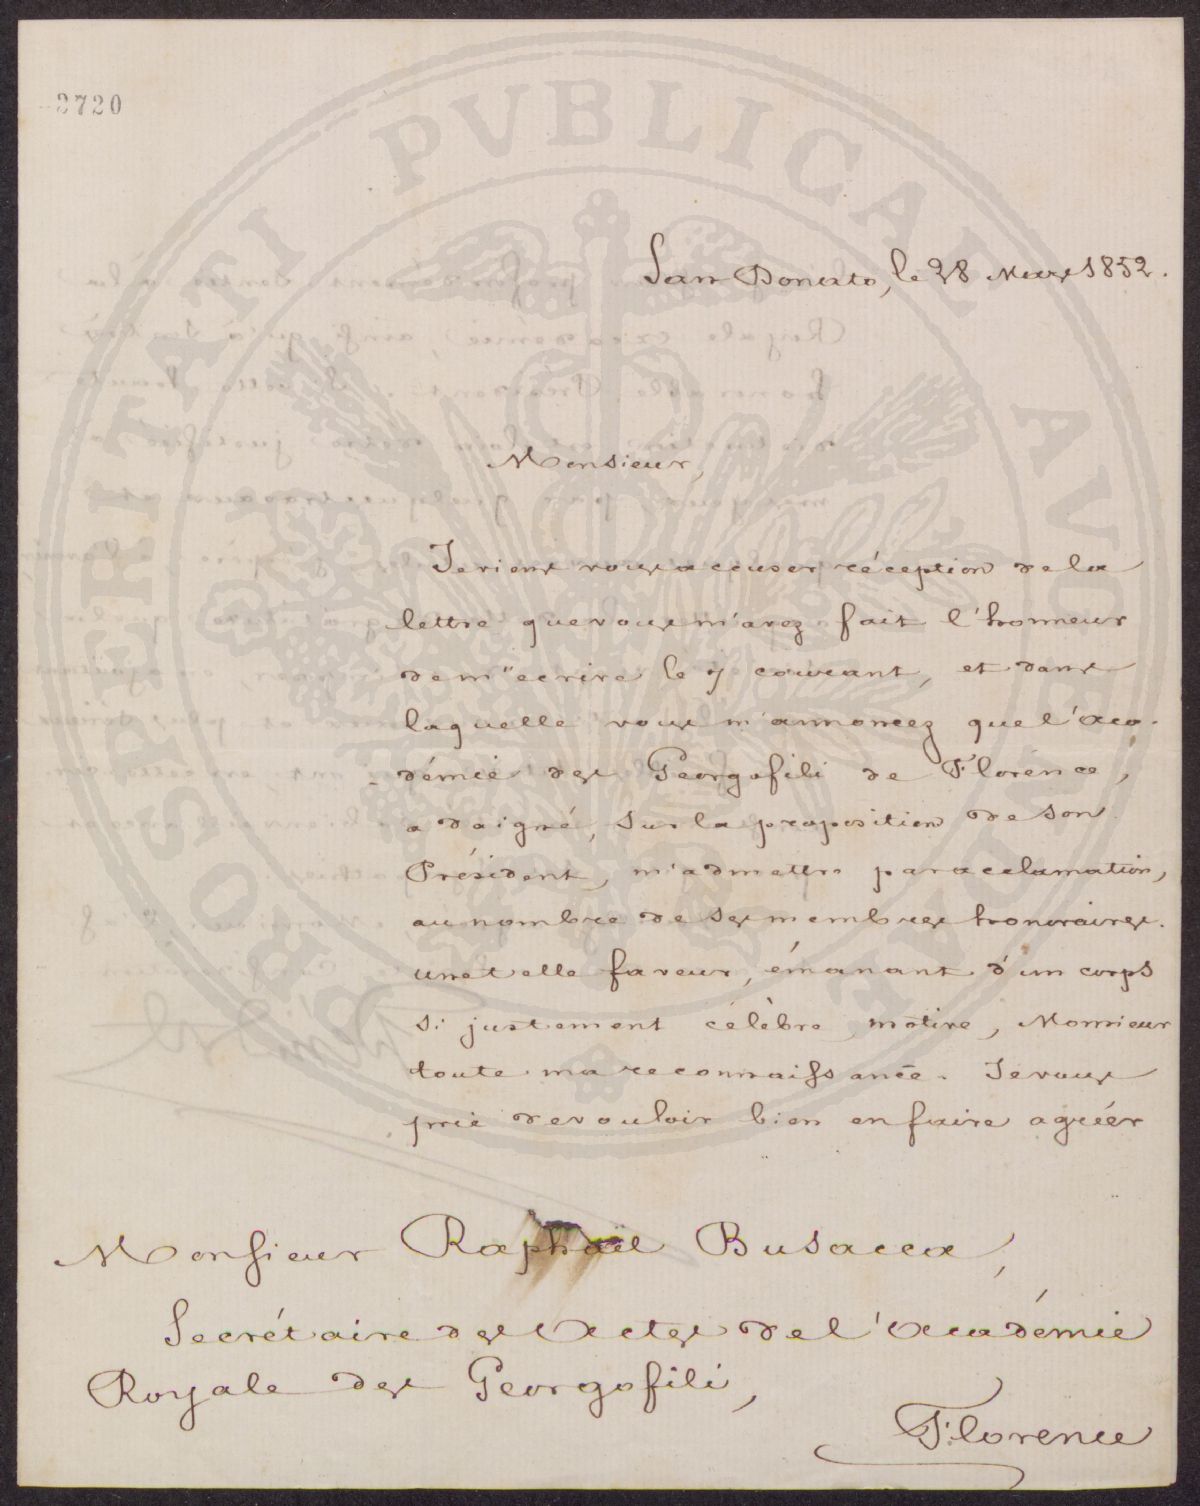 2720
PROSPERITATI PVBLICAE AVGENDAE
San Donato, le 28 Mars 1852.
Monsieur,
Je viens vous accuser réception de la
lettre que vous m'avez fait l'honneur
de m'ecrire le 7 courant, et dans
laquelle vous m'annoncez que l'Aca-
démie des Georgofili de Florence,
a daigné, sur la proposition de son
Président, m'admettre par acclamation,
au nombre de ses membres honoraires.
une telle faveur, émanant d'un corps
si justement célèbre, motive, Monsieur
toute ma reconnaissance. Je vous
prie de vouloir bien en faire agréer
Monsieur Raphaël Busacca,
Secrétaire des Actes de l'Académie
Royale des Georgofili,
Florence